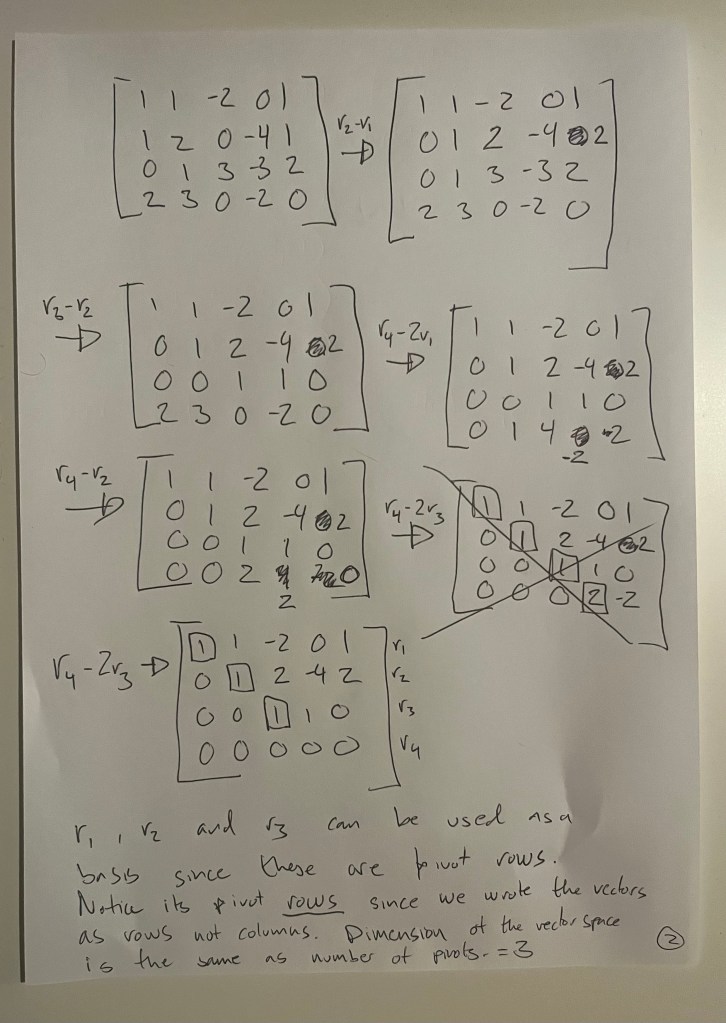 1 1 -2 0 1
1 2 0 -4 1
0 1 3 -3 2
2 3 0 -2 0
r2-r1
1 1 -2 0 1
0 1 2 -4 2
0 1 3 -3 2
2 3 0 -2 0
r3-r2
1 1 -2 0 1
0 1 2 -4 2
0 0 1 1 0
2 3 0 -2 0
r4-2r1
1 1 -2 0 1
0 1 2 -4 2
0 0 1 1 0
0 1 4 -2
-2
r4-r2
1 1 -2 0 1
0 1 2 -4 2
0 0 1 1 0
0 0 2 0
2
r4-2r3
1 1 -2 0 1
0 1 2 -4 2
0 0 1 1 0
0 0 0 2 -2
r4-2r3
1 1 -2 0 1 r1
0 1 2 -4 2 r2
0 0 1 1 0 r3
0 0 0 0 0 r4
r1, r2 and r3 can be used as a
basis since these are pivot rows.
Notice its pivot rows since we wrote the vectors
as rows not columns. Dimension of the vector space
is the same as number of pivots. = 3
2